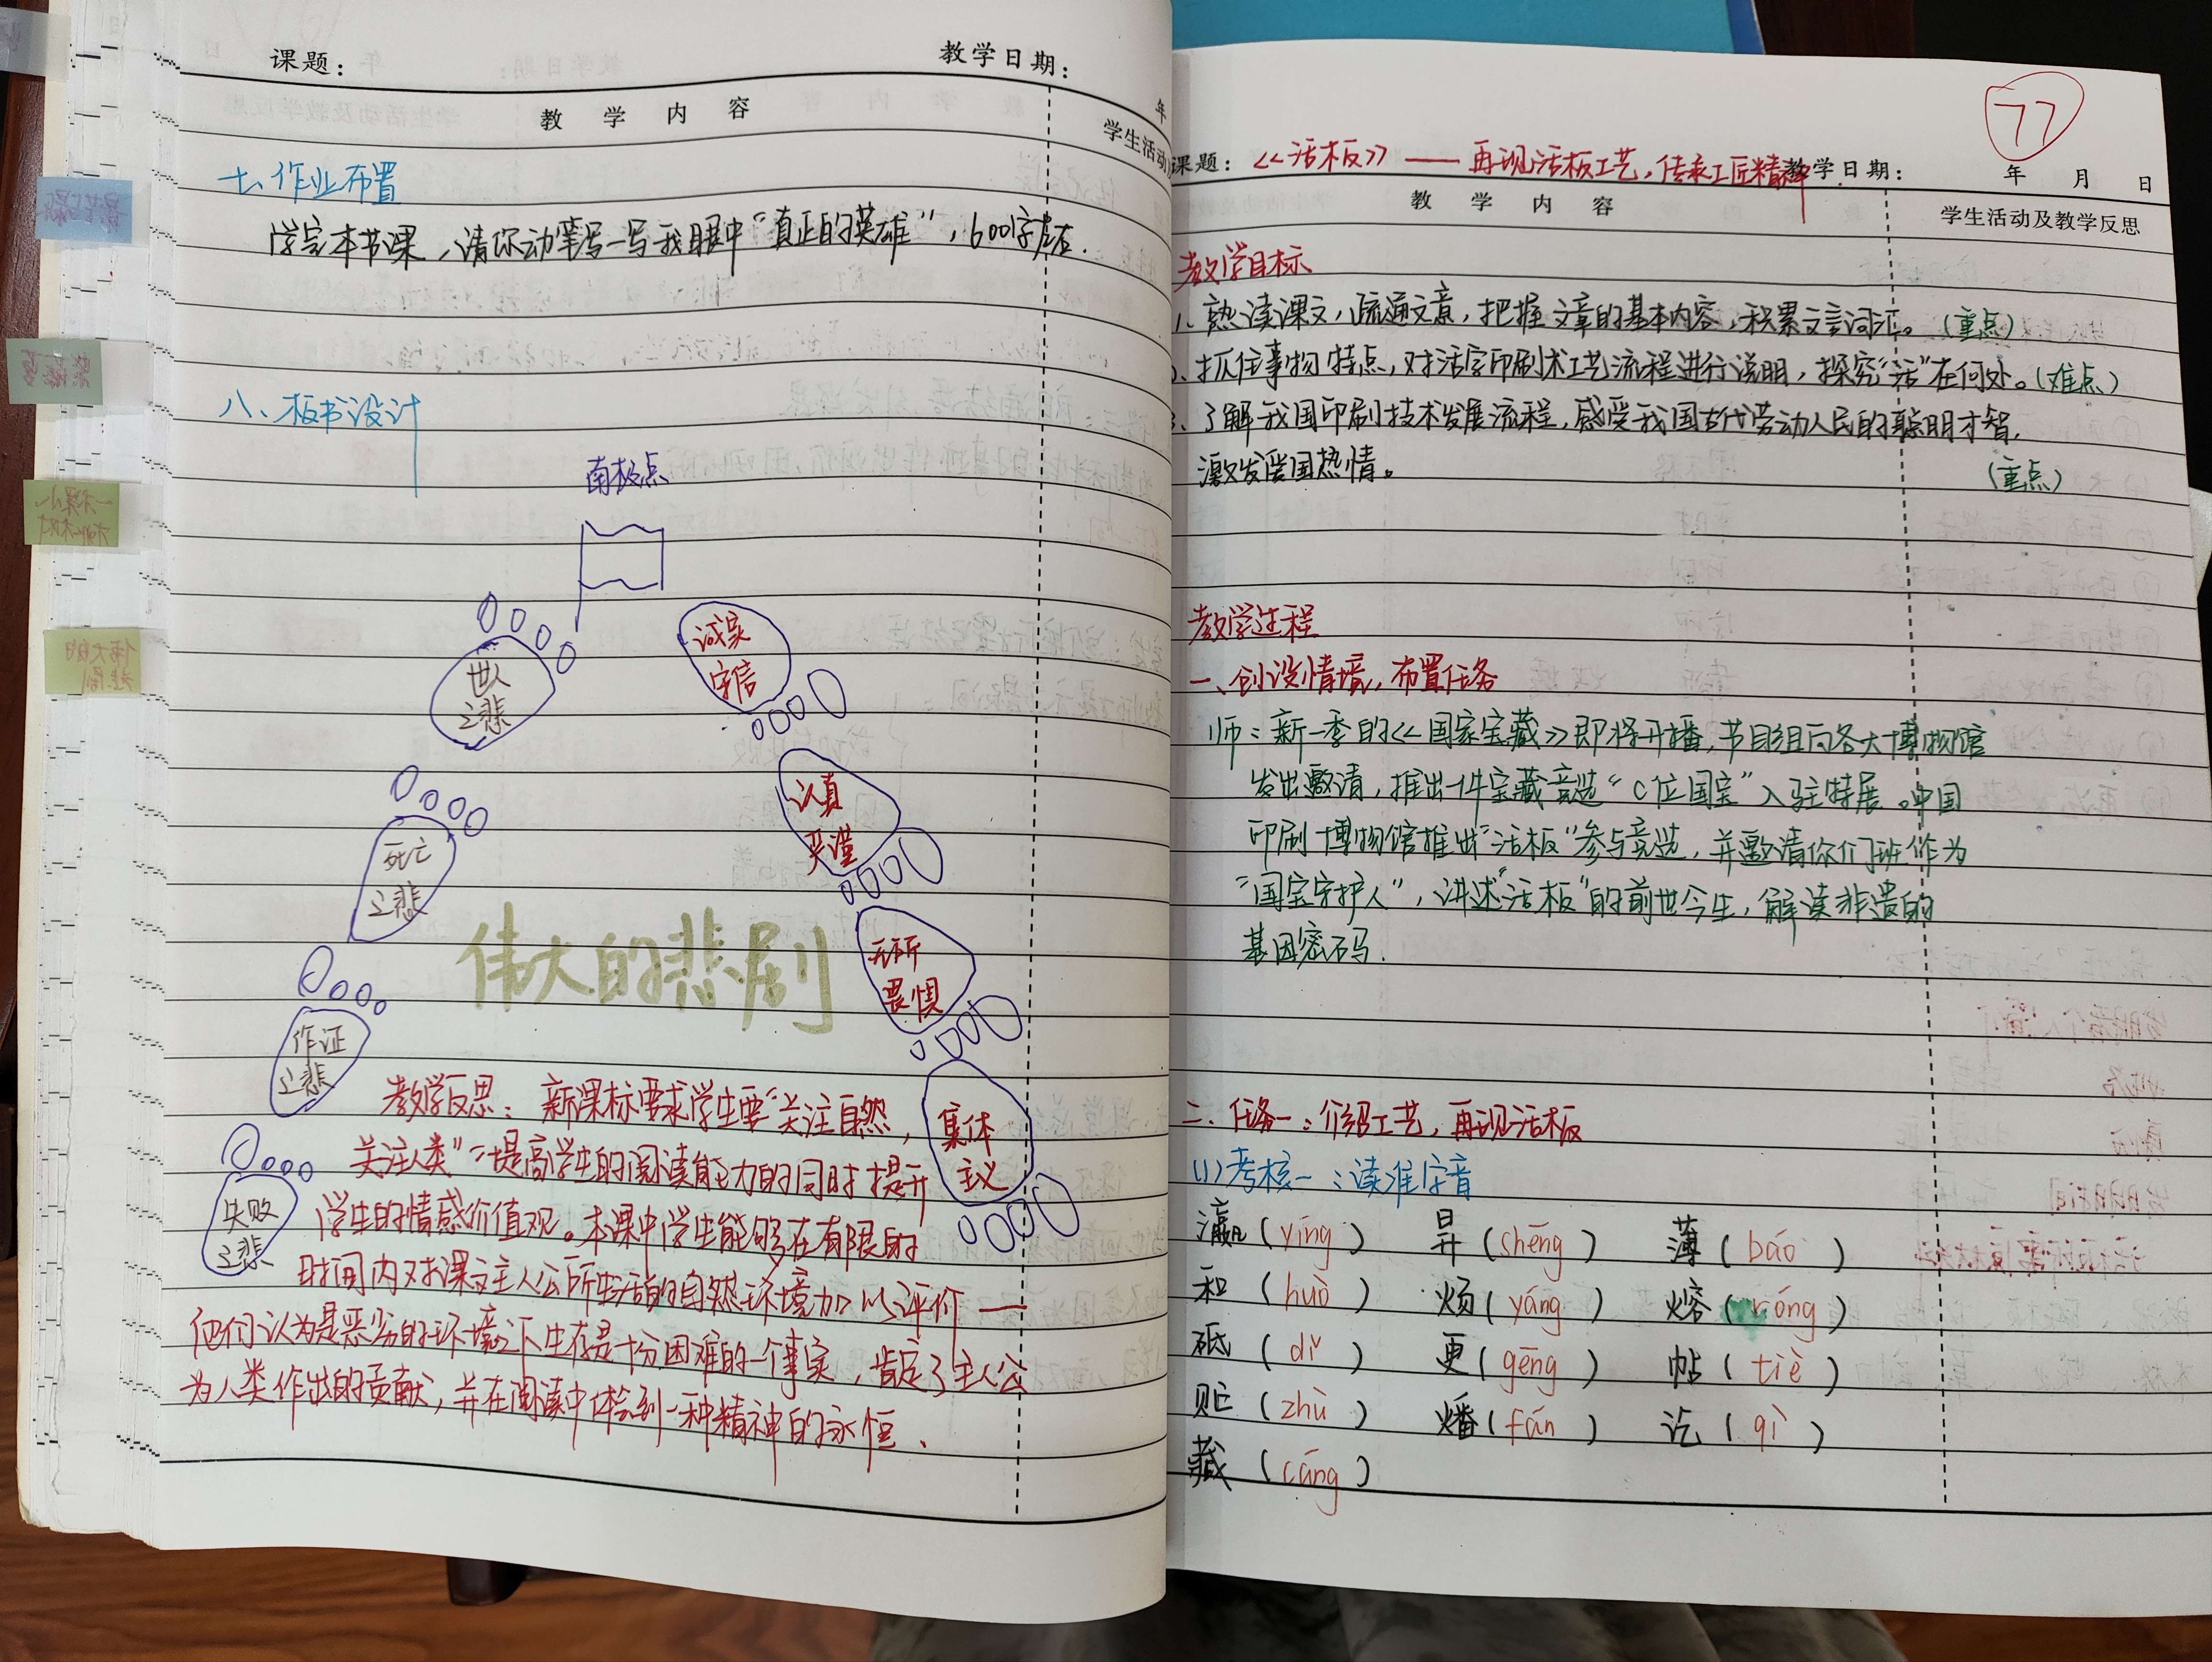 课题：
教学日期：
年
教学内容
学生活动
七、作业布置
学完本节课，请你动笔写一写我眼中“真正的英雄”，600字左右.
八、板书设计
南极点
世人
之悲
死亡
之悲
作证
之悲
失败
之悲
诚实
守信
认真
严谨
无所
畏惧
集体
主义
伟大的悲剧
教学反思：新课标要求学生要“关注自然，
关注人类”，提高学生的阅读能力的同时提升
学生的情感价值观。本课中学生能够在有限的
时间内对课文主人公所生活的自然环境加以评价——
他们认为是恶劣的环境之下生存是十分困难的一个事实，肯定了主人公
为人类作出的贡献，并在阅读中体会到一种精神的永恒、
77
课题：《活板》——再现活板工艺，传承工匠精神
教学日期：
年 月 日
教学内容
学生活动及教学反思
教学目标
1、熟读课文，疏通文意，把握文章的基本内容，积累文言词汇。（重点）
、抓住事物特点，对活字印刷术工艺流程进行说明，探究“活”在何处。（难点）
3、了解我国印刷技术发展流程，感受我国古代劳动人民的聪明才智，
激发爱国热情。（重点）
教学过程
一、创设情境，布置任务
师：新一季的《国家宝藏》即将开播，节目组向各大博物馆
发出邀请，推出一件宝藏竞选“C位国宝”入驻特展。中国
印刷博物馆推出“活板”参与竞选，并邀请你们班作为
“国宝守护人”，讲述“活板”的前世今生，解读非遗的
基因密码.
二、任务一：介绍工艺，再现活板
(1)考核一：读准字音
瀛（yíng） 昇（shēng） 薄（báo）
和（huò） 炀（yáng） 熔（róng）
砥（dǐ） 更（gēng） 帖（tiě）
贮（zhù） 燔（fán） 讫（qì）
藏（cáng）